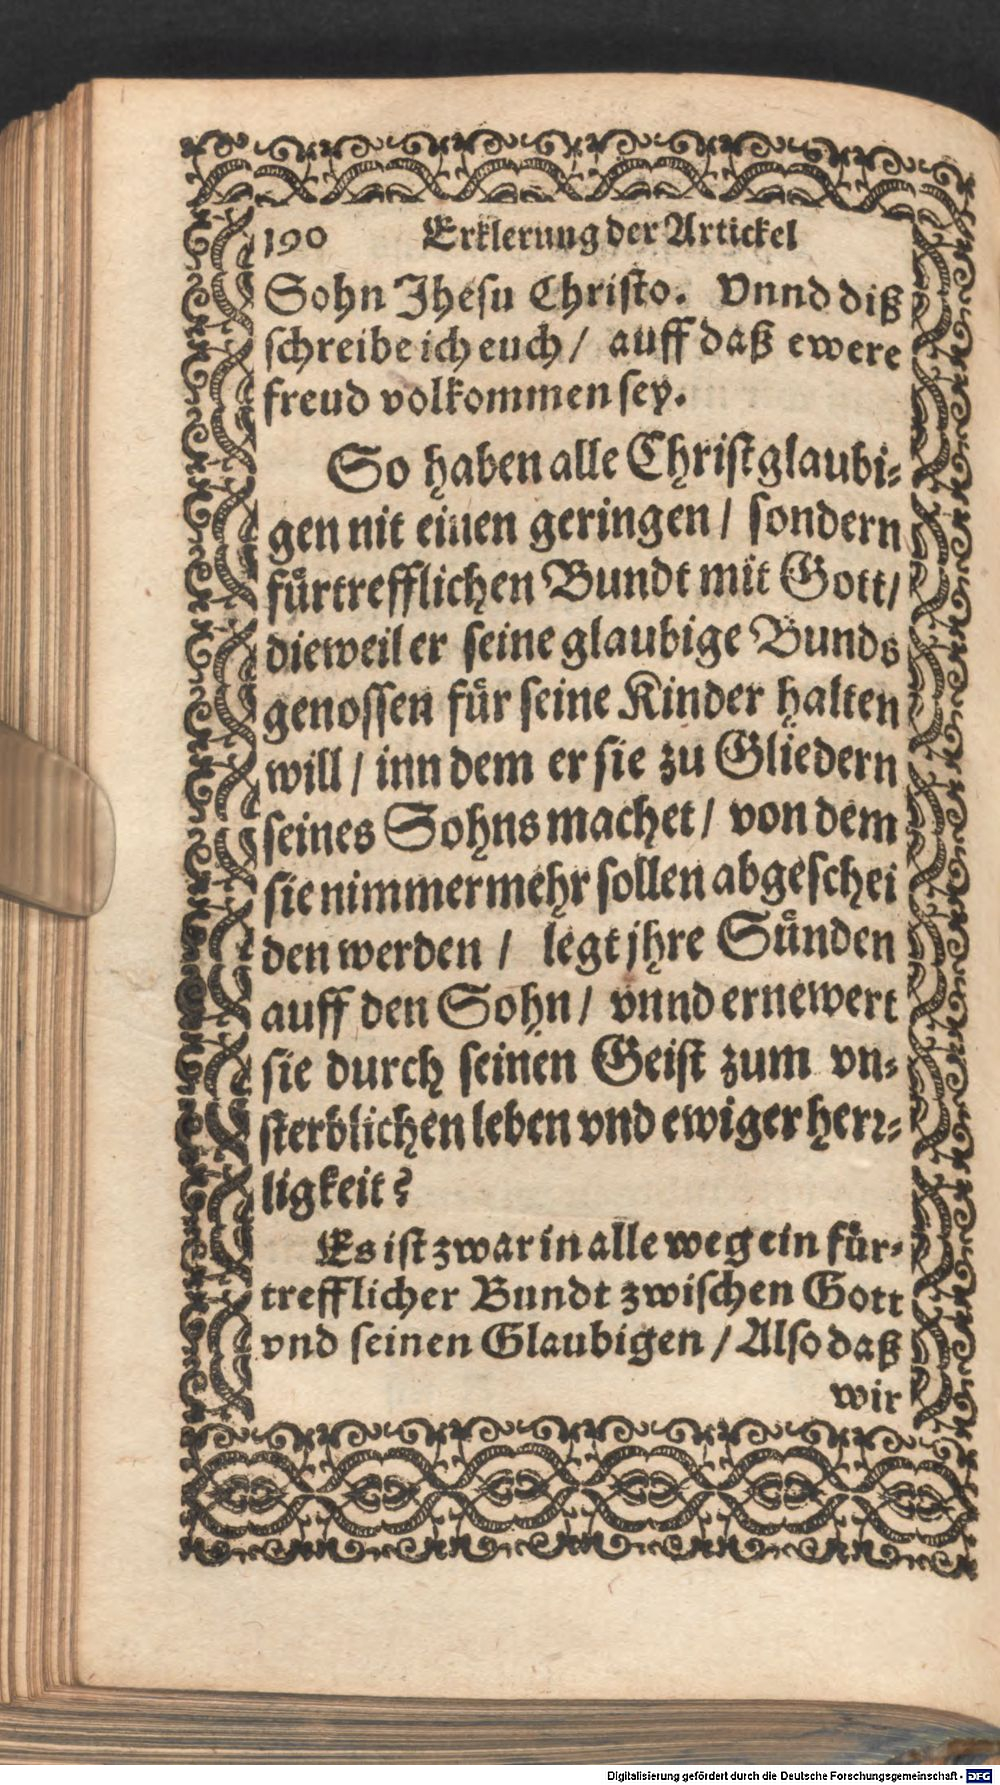 190 Erklerung der Artickel
Sohn Jhesu Christo. Vnnd diß
schreibe ich euch / auff daß ewere
freud volkommen sey.
So haben alle Christglaubi-
gen nit einen geringen / sondern
fürtrefflichen Bundt mit Gott /
dieweil er seine glaubige Bunds
genossen für seine Kinder halten
will / inn dem er sie zu Gliedern
seines Sohns machet / von dem
sie nimmermehr sollen abgeschei
den werden / legt jhre Sünden
auff den Sohn / vnnd ernewert
sie durch seinen Geist zum vn-
sterblichen leben vnd ewiger herr-
ligkeit?
Es ist zwar in alle weg ein für-
trefflicher Bundt zwischen Gott
vnd seinen Glaubigen / Also daß
wir
Digitalisierung gefördert durch die Deutsche Forschungsgemeinschaft - DFG